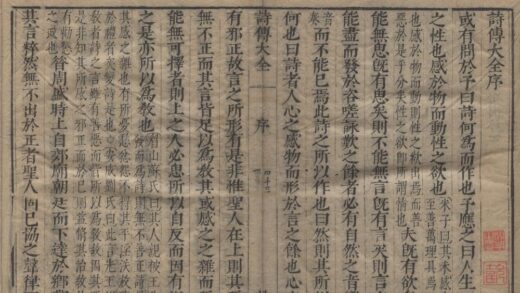 詩傳大全序
或有問於予曰詩何為而作也予應之曰人生
之性也感於物而動性之欲也朱子曰其未感至善萬理具焉
也感於物而動則性之欲出焉而善惡於是乎分矣性之欲即所謂情也夫既有欲
能無思既有思矣則不能無言既有言矣則言
能盡而發於咨嗟詠歎之餘者必有自然之音
奏而不能已焉此詩之所以作也曰然則其所
何也曰詩者人心之感物而形於言之餘也心
詩傳大全 序
有邪正故言之所形有是非惟聖人在上則其
無不正而其言皆足以為教其或感之之雜而
能無可擇者則上之人必思所以自反而因有
之是亦所以為教也
昔周盛時上自郊廟朝廷而下達於鄉
其言粹然無不出於正者聖人固已協之聲律